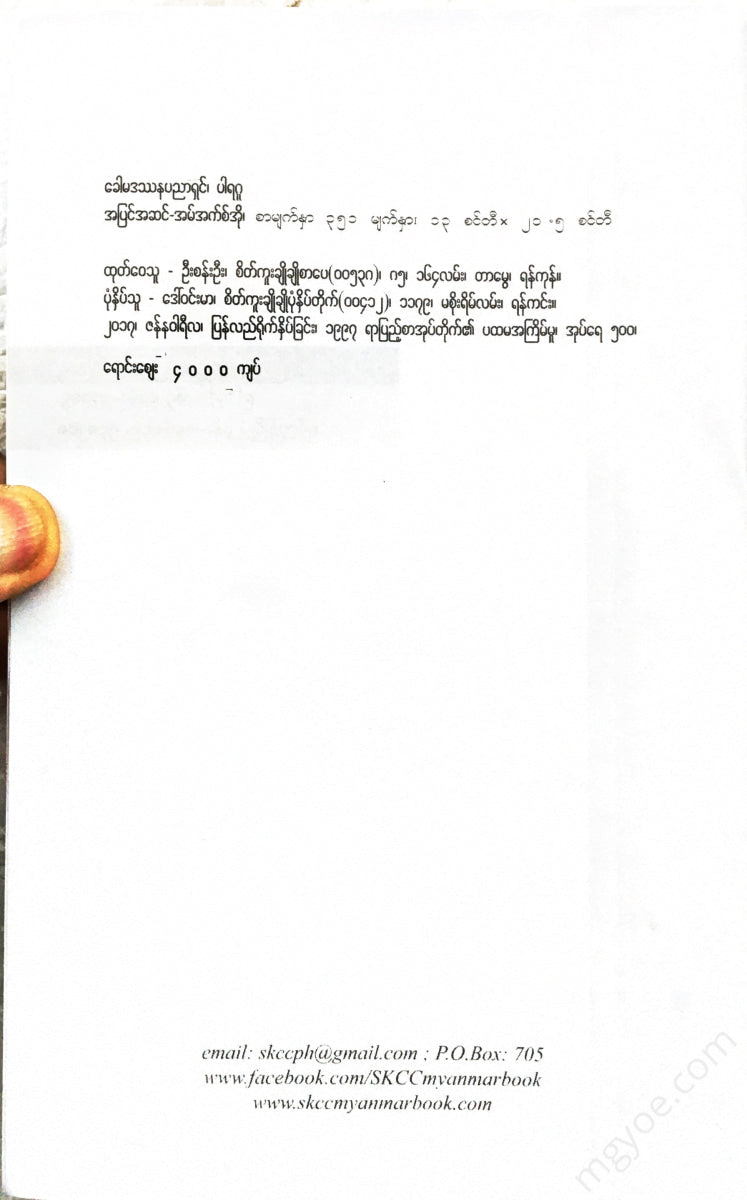 ခေါမဒဿနပညာရှင်၊ ပါရဂူ
အပြင်အဆင်-အမ်အက်စ်အို၊ စာမျက်နှာ ၃၅၁ မျက်နှာ၊ ၁၃ စင်တီ× ၂၁.၅ စင်တီ
ထုတ်ဝေသူ - ဦးစန်းဦး၊ စိတ်ကူးချိုချိုစာပေ(၀၀၅၃၈)၊ ဂ၅၊ ၁၆၄လမ်း၊ တာမွေ၊ ရန်ကုန်။
ပုံနှိပ်သူ - ဒေါ်ဝင်းမာ၊ စိတ်ကူးချိုချိုပုံနှိပ်တိုက်(၀၀၄၁၂)၊ ၁၁၇၉၊ မစိုးရိမ်လမ်း၊ ရန်ကင်း။
၂၀၁၇၊ ဇန်နဝါရီလ၊ ပြန်လည်ရိုက်နှိပ်ခြင်း၊ ၁၉၉၇ ရာပြည့်စာအုပ်တိုက်၏ ပထမအကြိမ်မူ၊ အုပ်ရေ ၅၀၀၊
ရောင်းဈေး ၄၀၀၀ ကျပ်
email: skccph@gmail.com ; P.O.Box: 705
www.facebook.com/SKCCmyanmarbook
www.skccmyanmarbook.com
mgyoe.com